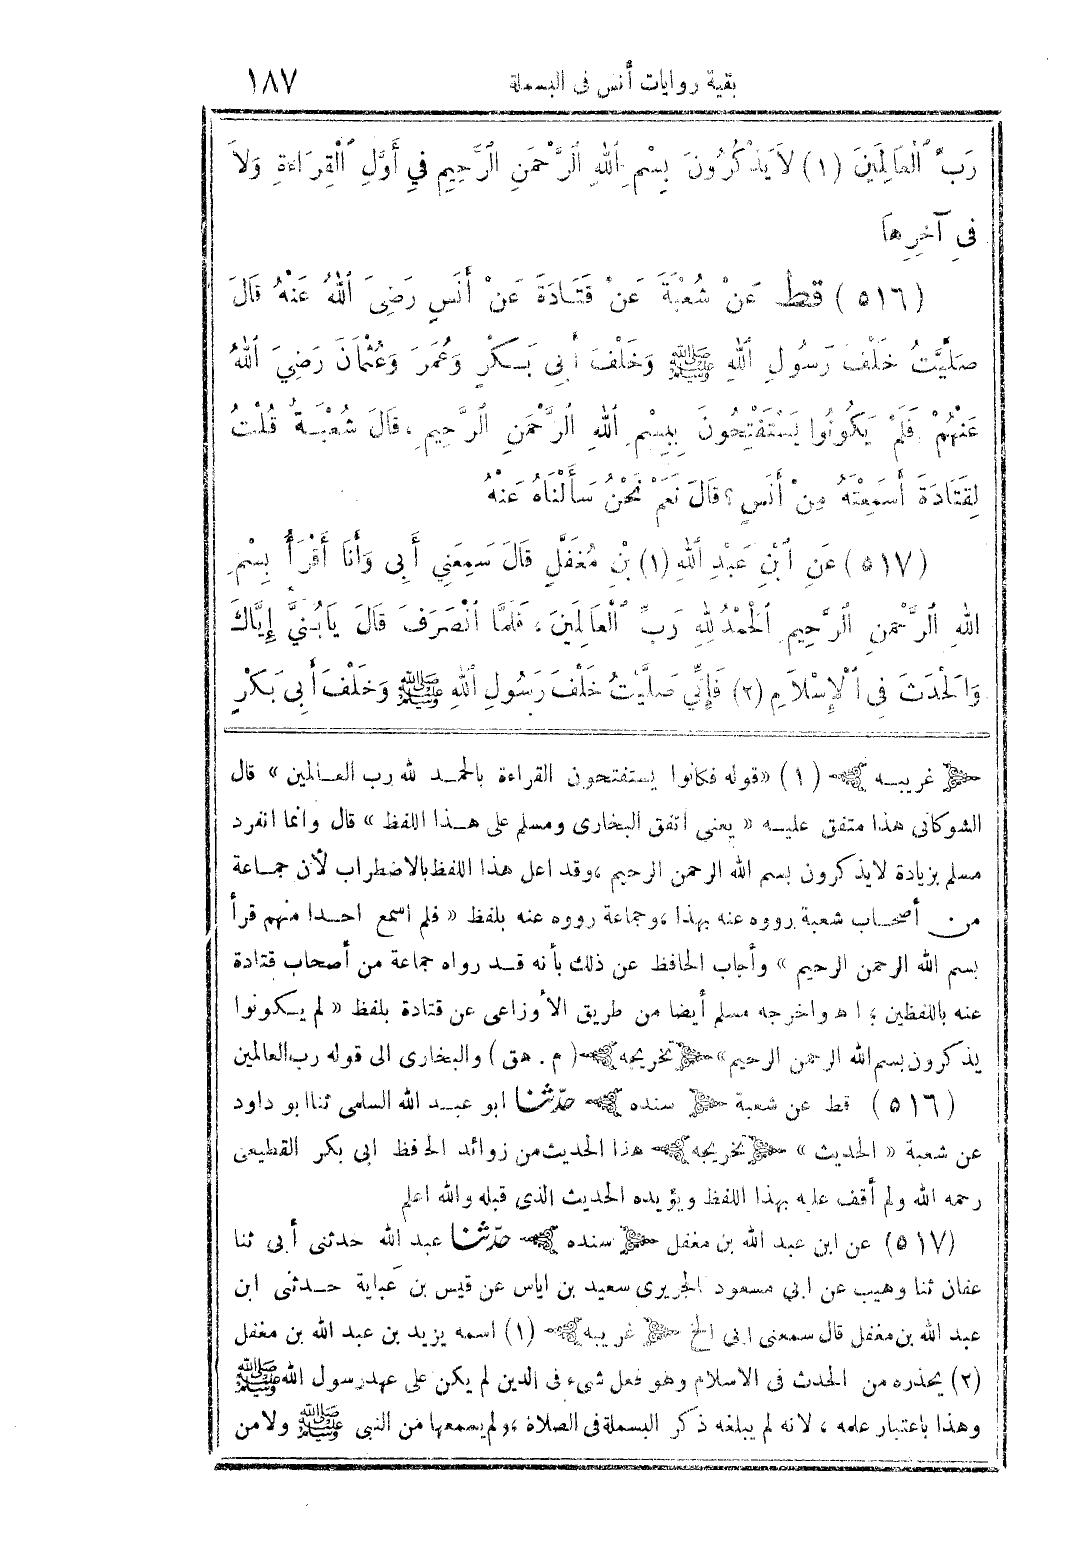 بقية روايات أنس فى البسملة ١٨٧
رَبِّ ٱلْعَالَمِينَ (١) لاَيَذْكُرُونَ بِسْمِ ٱللهِ ٱلرَّحْمَنِ ٱلرَّحِيمِ فِي أَوَّلِ ٱلْقِرَاءَةِ وَلاَ
فِى آخِرِهَا
(٥١٦) قط عَنْ شُعْبَةَ عَنْ قَتَادَةَ عَنْ أَنَسٍ رَضِىَ ٱللهُ عَنْهُ قَالَ
صَلَّيْتُ خَلْفَ رَسُولِ ٱللهِ ﷺ وَخَلْفَ أَبِى بَكْرٍ وَعُمَرَ وَعُثْمَانَ رَضِيَ ٱللهُ
عَنْهُمْ فَلَمْ يَكُونُوا يَسْتَفْتِحُونَ بِبِسْمِ ٱللهِ ٱلرَّحْمَنِ ٱلرَّحِيمِ ، قَالَ شُعْبَةُ قُلْتُ
لِقَتَادَةَ أَسَمِعْتَهُ مِنْ أَنَسٍ ؟ قَالَ نَعَمْ نَحْنُ سَأَلْنَاهُ عَنْهُ
(٥١٧) عَنِ ٱبْنِ عَبْدِ ٱللهِ (١) بْنِ مُغَفَّلٍ قَالَ سَمِعَنِي أَبِى وَأَنَا أَقْرَأُ بِسْمِ
ٱللهِ ٱلرَّحْمَنِ ٱلرَّحِيمِ ٱلْحَمْدُ لِلهِ رَبِّ ٱلْعَالَمِينَ ، فَلَمَّا ٱنْصَرَفَ قَالَ يَابُنَيَّ إِيَّاكَ
وَٱلْحَدَثَ فِى ٱلْإِسْلاَمِ (٢) فَإِنِّي صَلَّيْتُ خَلْفَ رَسُولِ ٱللهِ ﷺ وَخَلْفَ أَبِى بَكْرٍ
غريبه (١) «قوله فكانوا يستفتحون القراءة بالحمد لله رب العالمين» قال
الشوكانى هذا متفق عليه «يعنى اتفق البخارى ومسلم على هذا اللفظ» قال وانما انفرد
مسلم بزيادة لايذكرون بسم الله الرحمن الرحيم ،وقد اعل هذا اللفظ بالاضطراب لأن جماعة
من أصحاب شعبة رووه عنه بهذا ،وجماعة رووه عنه بلفظ «فلم اسمع احدا منهم قرأ
بسم الله الرحمن الرحيم» وأجاب الحافظ عن ذلك بأنه قد رواه جماعة من أصحاب قتادة
عنه باللفظين ؛ اه واخرجه مسلم أيضا من طريق الأوزاعى عن قتادة بلفظ «لم يكونوا
يذكرون بسم الله الرحمن الرحيم» تخريجه (م . هق) والبخارى الى قوله رب العالمين
(٥١٦) قط عن شعبة سنده حدّثنا ابو عبد الله السلمى ثنا ابو داود
عن شعبة «الحديث» تخريجه هذا الحديث من زوائد الحافظ ابى بكر القطيعى
رحمه الله ولم أقف عليه بهذا اللفظ ويؤيده الحديث الذى قبله والله اعلم
(٥١٧) عن ابن عبد الله بن مغفل سنده حدّثنا عبد الله حدثنى أبى ثنا
عفان ثنا وهيب عن ابي مسعود الجريرى سعيد بن اياس عن قيس بن عباية حدثنى ابن
عبد الله بن مغفل قال سمعنى ابى الخ غريبه (١) اسمه يزيد بن عبد الله بن مغفل
(٢) يحذره من الحدث فى الاسلام وهو فعل شىء فى الدين لم يكن على عهد رسول الله ﷺ
وهذا باعتبار علمه ، لانه لم يبلغه ذكر البسملة فى الصلاة ،ولم يسمعها من النبى ﷺ ولا من